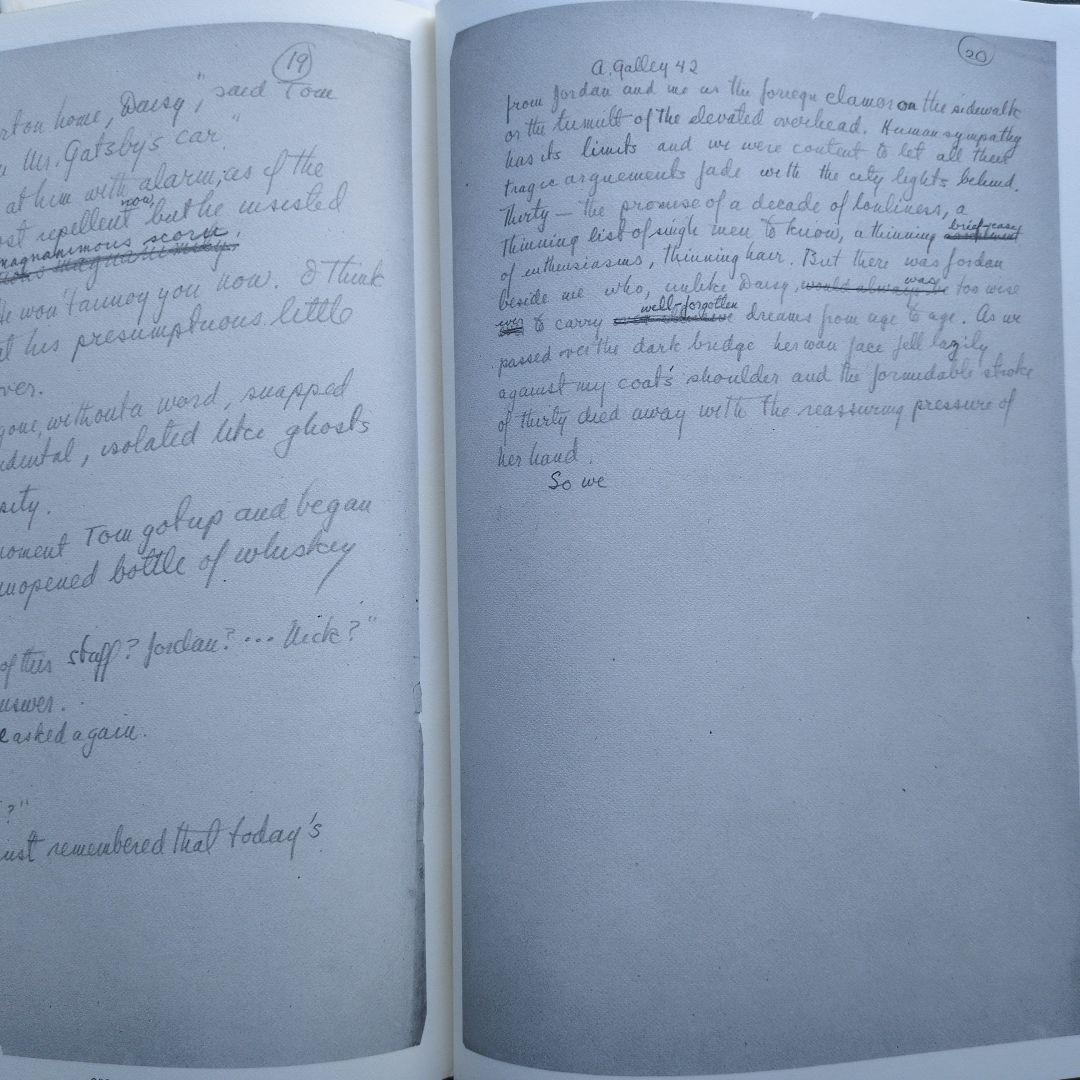 19
on home, Daisy", said Tom
Mr. Gatsby's car"
at him with alarm, as if the
now,
repellent but he insisted
magnanimous scorn.
magnanimity.
He won't annoy you now. I think
his presumptuous little
ver.
gone, without a word, snapped
dental, isolated like ghosts
sity.
moment Tom got up and began
unopened bottle of whiskey
of this stuff? Jordan? ... Nick?"
nswer.
e asked again.
?"
ust remembered that today's
20
A. Galley 42
from Jordan and me as the foriegn clamor on the sidewalk
or the tumult of the elevated overhead. Human sympathy
has its limits and we were content to let all their
tragic arguements fade with the city lights behind.
Thirty — the promise of a decade of lonliness, a
thinning list of single men to know, a thinning brief-case
of enthusiasms, thinning hair. But there was Jordan
was
beside me who, unlike Daisy, would always be too wise
well-forgotten
ever to carry dreams from age to age. As we
passed over the dark bridge her wan face fell lazily
against my coat's shoulder and the formidable stroke
of thirty died away with the reassuring pressure of
her hand.
So we